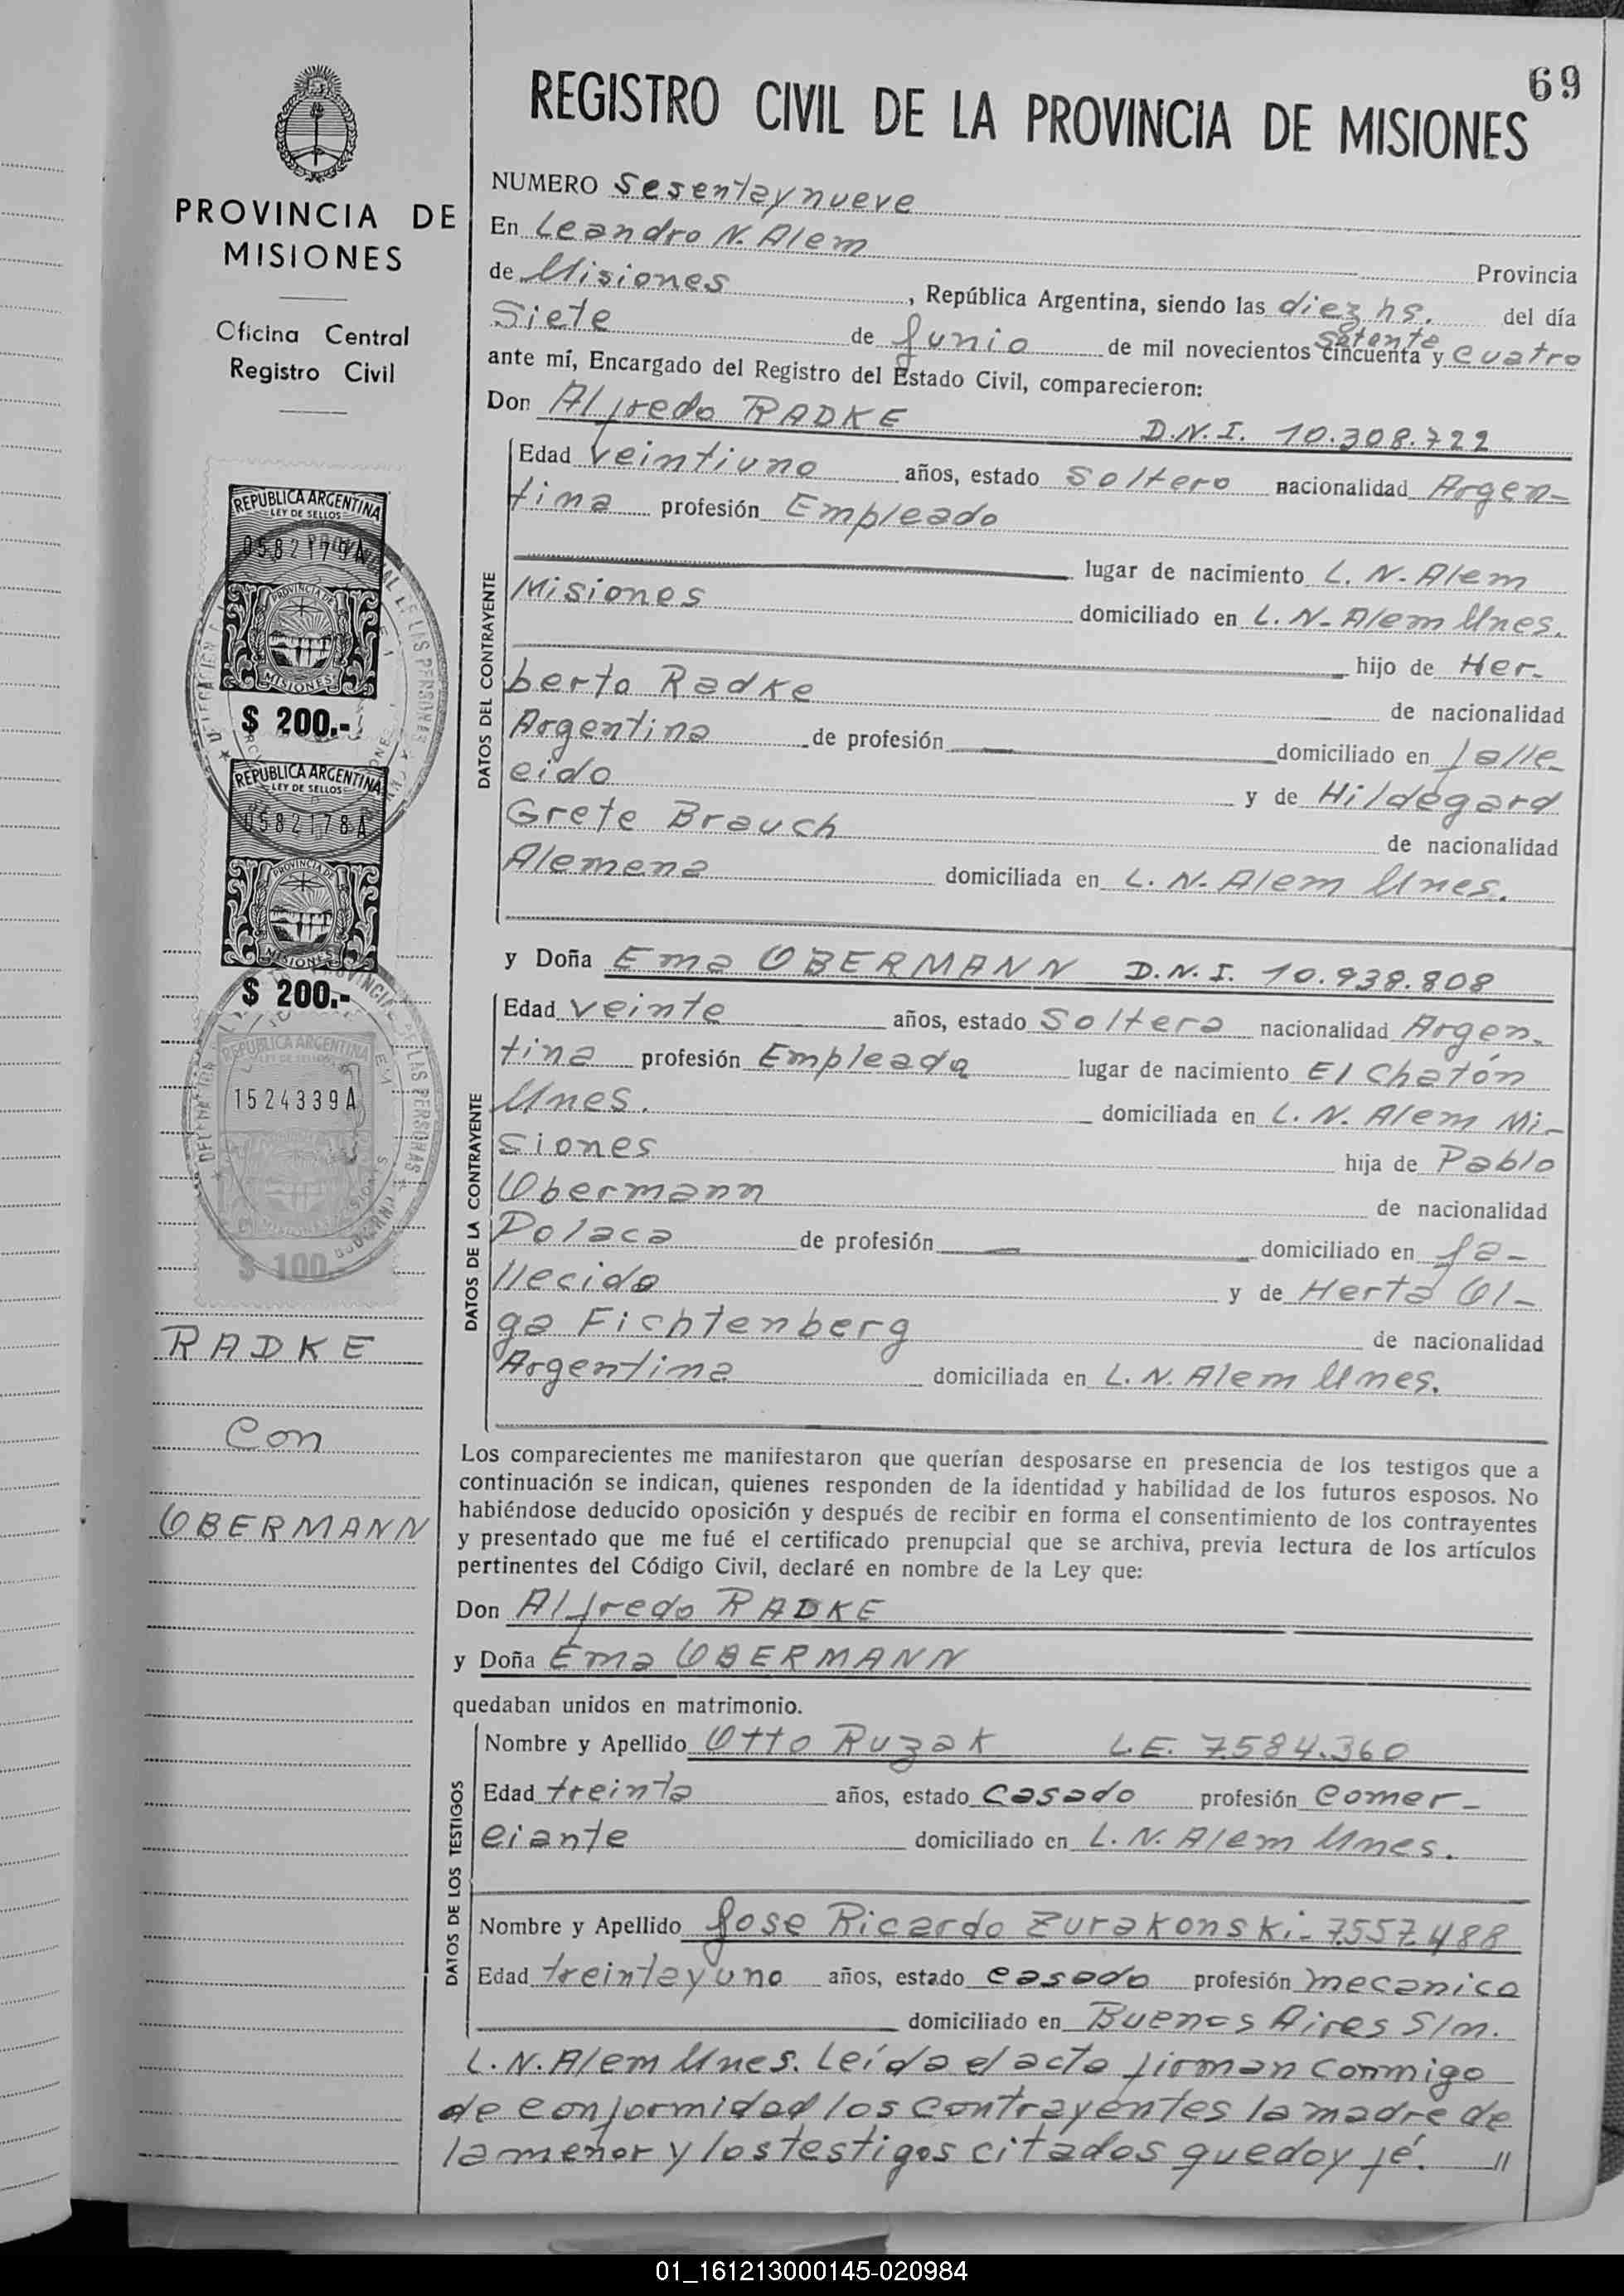 69
REGISTRO CIVIL DE LA PROVINCIA DE MISIONES
PROVINCIA DE
MISIONES
Oficina Central
Registro Civil
REPUBLICA ARGENTINA
LEY DE SELLOS
0582179A
PROVINCIA DE
MISIONES
$ 200.-
REPUBLICA ARGENTINA
LEY DE SELLOS
0582178A
PROVINCIA DE
MISIONES
$ 200.-
REPUBLICA ARGENTINA
LEY DE SELLOS
1524339A
$ 100.-
RADKE
Con
OBERMANN
NUMERO Sesentaynueve
En Leandro N. Alem
Provincia
de Misiones, República Argentina, siendo las diez hs. del día
Siete de Junio de mil novecientos cincuenta setenta y cuatro
ante mí, Encargado del Registro del Estado Civil, comparecieron:
Don Alfredo RADKE D.N.I. 10.308.722
DATOS DEL CONTRAYENTE
Edad veintiuno años, estado Soltero nacionalidad Argen-
tina profesión Empleado
lugar de nacimiento L. N. Alem
Misiones domiciliado en L. N. Alem Mnes.
hijo de Her-
berto Radke de nacionalidad
Argentina de profesión domiciliado en falle-
cido y de Hildegard
Grete Brauch de nacionalidad
Alemana domiciliada en L. N. Alem Mnes.
y Doña Ema OBERMANN D.N.I. 10.938.808
DATOS DE LA CONTRAYENTE
Edad veinte años, estado Soltera nacionalidad Argen-
tina profesión Empleada lugar de nacimiento El Chatón
Mnes. domiciliada en L. N. Alem Mi-
siones hija de Pablo
Obermann de nacionalidad
Polaca de profesión domiciliado en fa-
llecido y de Herta Ol-
ga Fichtenberg de nacionalidad
Argentina domiciliada en L. N. Alem Mnes.
Los comparecientes me manifestaron que querían desposarse en presencia de los testigos que a
continuación se indican, quienes responden de la identidad y habilidad de los futuros esposos. No
habiéndose deducido oposición y después de recibir en forma el consentimiento de los contrayentes
y presentado que me fué el certificado prenupcial que se archiva, previa lectura de los artículos
pertinentes del Código Civil, declaré en nombre de la Ley que:
Don Alfredo RADKE
y Doña Ema OBERMANN
quedaban unidos en matrimonio.
DATOS DE LOS TESTIGOS
Nombre y Apellido Otto Ruzak L.E. 7.584.360
Edad treinta años, estado casado profesión comer-
ciante domiciliado en L. N. Alem Mnes.
Nombre y Apellido Jose Ricardo Zurakonski- 7.557.488
Edad treintayuno años, estado casado profesión mecanico
domiciliado en Buenos Aires S/n.
L. N. Alem Mnes. Leída el acta firman conmigo
de conformidad los contrayentes la madre de
la menor y los testigos citados que doy fé. //
01_161213000145-020984